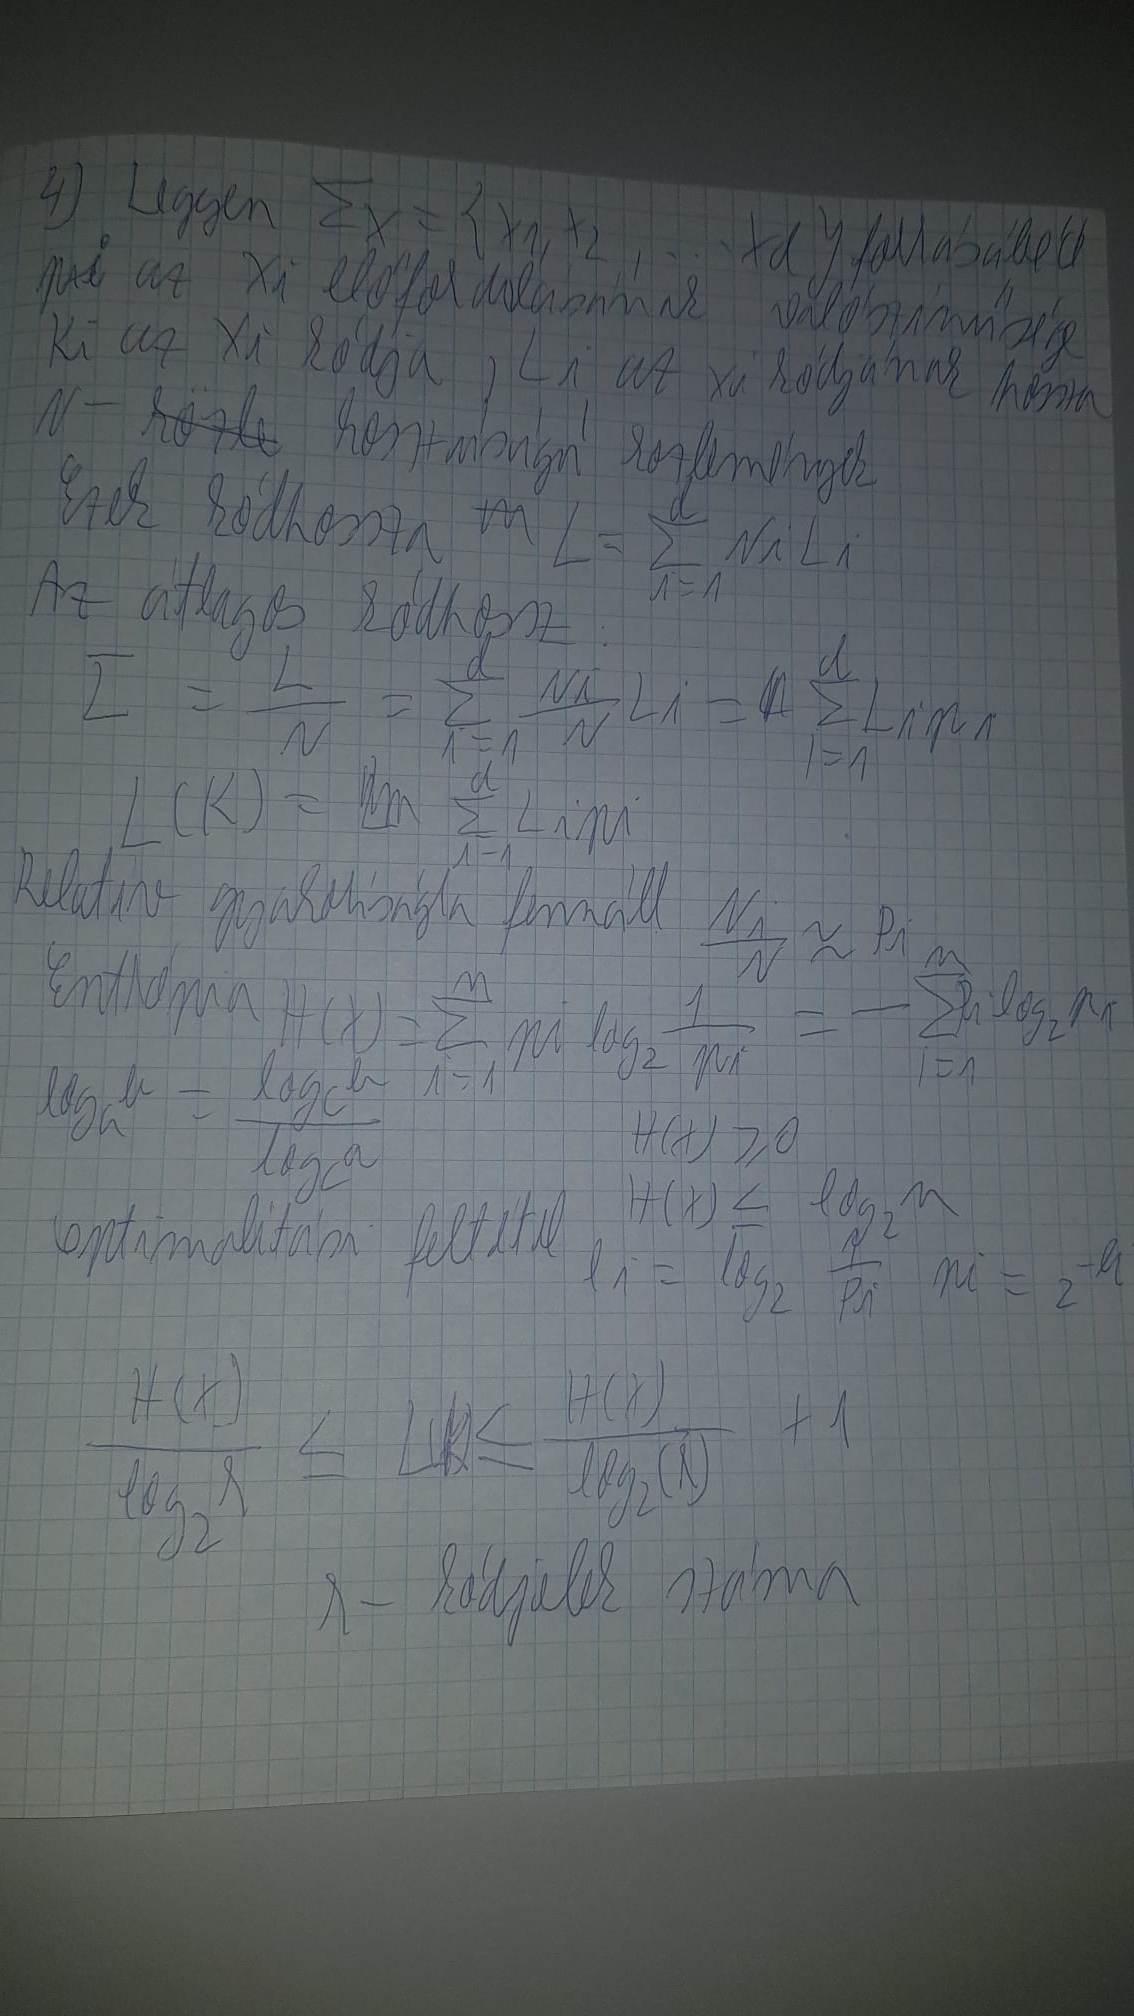 4) Legyen Σx = {x1, x2, ... xd} forrásábécé
pi az xi előfordulásának valószínűsége
Ki az xi kódja, Li az xi kódjának hossza
N - hosszúságú közlemények
Ezek kódhossza L = Σ_{i=1}^{d} Ni Li
Az átlagos kódhossz:
L̄ = L/N = Σ_{i=1}^{d} Ni/N Li = Σ_{i=1}^{d} Li pi
L(K) = Σ_{i=1}^{d} Li pi
Relatív gyakoriságra fennáll Ni/N ≈ Pi
Entrópia H(X) = Σ_{i=1}^{n} pi log₂ 1/pi = - Σ_{i=1}^{n} pi log₂ pi
log_a b = log_c b / log_c a
H(X) ≥ 0
H(X) ≤ log₂ n
optimalitási feltétel li = log₂ 1/Pi pi = 2^{-li}
H(X)/log₂ r ≤ L(K) ≤ H(X)/log₂(r) + 1
r - kódjelek száma